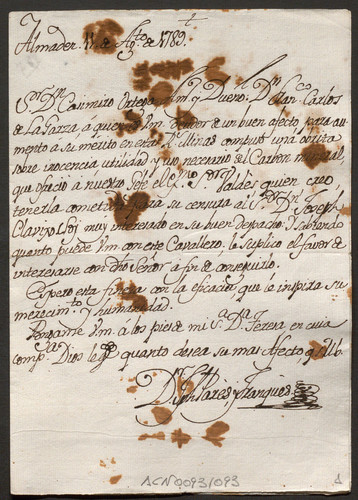 Almaden 11 de Ag.to de 1789.
S.or D.n Casimiro Ortega Am.º y Dueño: D.n Juan Carlos
de La Garza á quien Vm. deudor de un buen afecto para au
mento á su merito en estas R.s Minas compuso una obrita
sobre inocencia utilidad y uso necesario del Carbon mineral,
que ofrecio á nuestro Jefe el Ex.mo S.or Valdés quien creo
tenerla cometida para su censura al S.or D.n Joseph
Clavijo. Soy muy interesado en su buen despacho: y sabiendo
quanto puede Vm con este Cavallero, le suplico el favor de
interesarse con dho Señor á fin de conseguirlo.
Espero esta fineza con la eficacia, que le inspira su
merecim.to y humanidad.
Pongame Vm á los pies de mi S.ra D.a Teresa en cuia
comp.a Dios le g.de quanto desea su mas Afecto q. S. M. b.
ACN0093/093